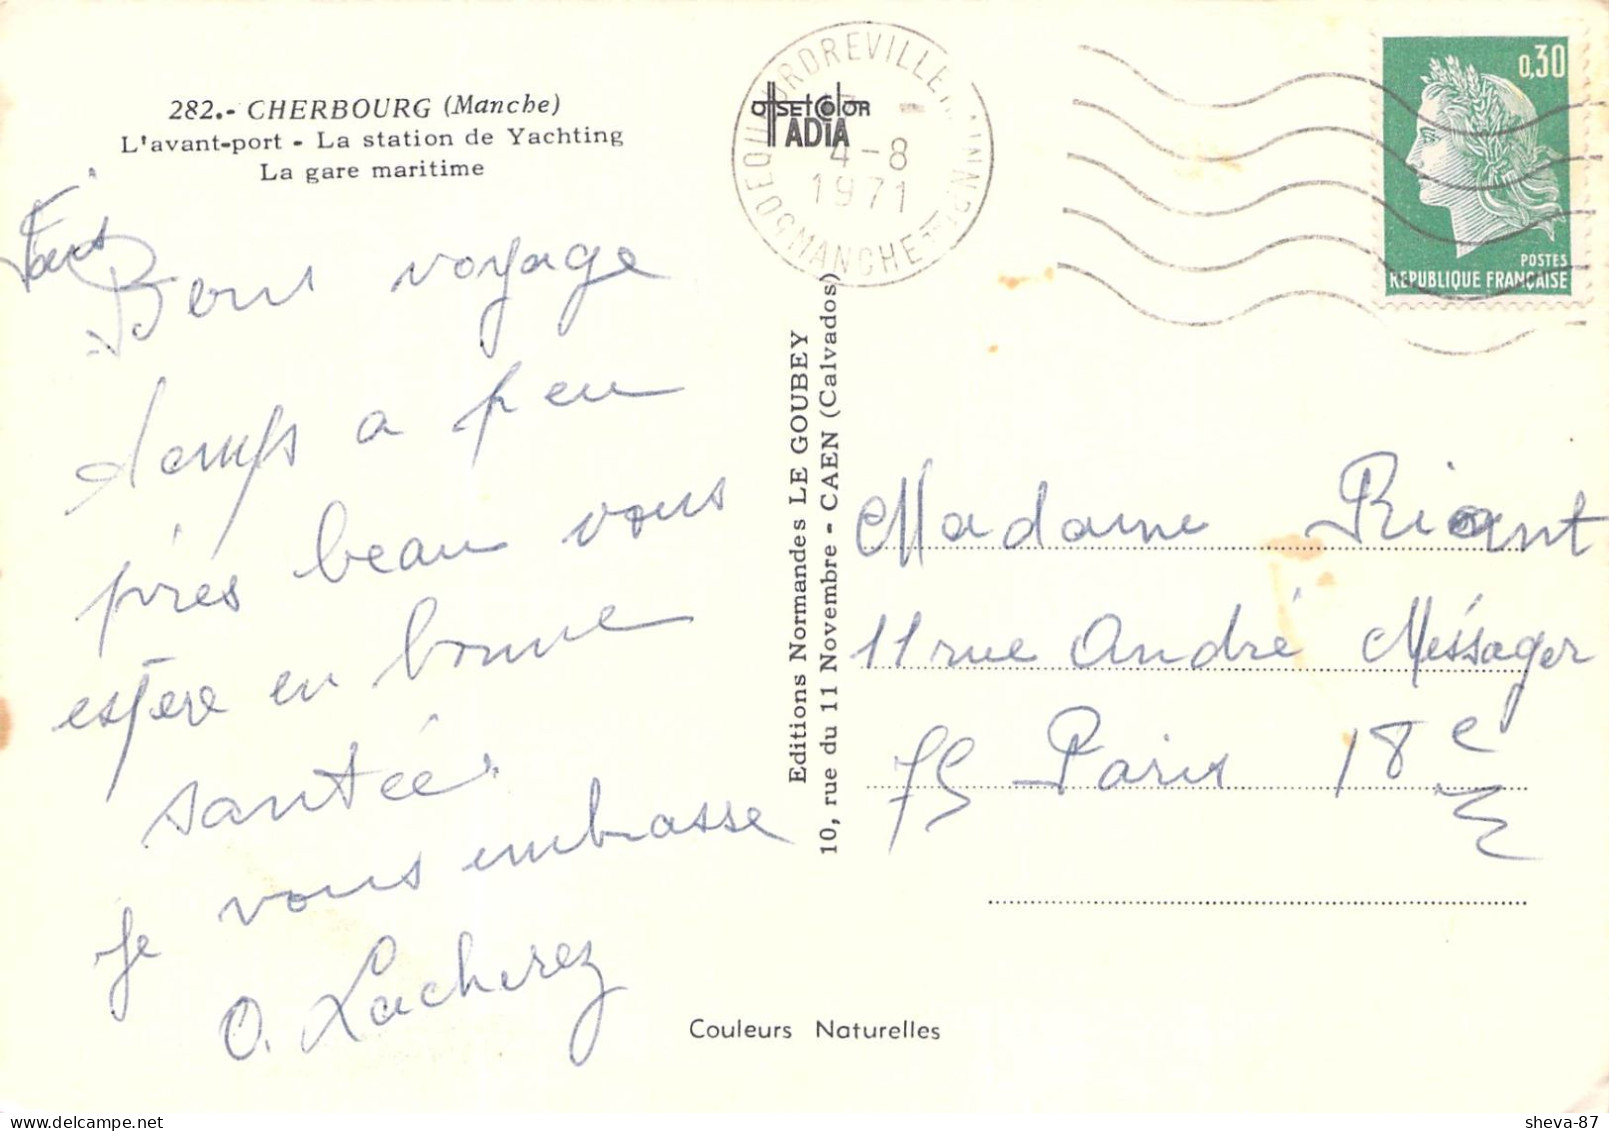 282.- CHERBOURG (Manche)
L'avant-port - La station de Yachting
La gare maritime
Fais
Bons voyage
temps a peu
près beau vous
espere en bonne
santée.
Je vous embrasse
O. Lacherez
OFFSET COLOR
IADIA
EQUEURDREVILLE
4-8
1971
50 MANCHE
0,30
POSTES
REPUBLIQUE FRANÇAISE
Editions Normandes LE GOUBEY
10, rue du 11 Novembre - CAEN (Calvados)
Madame Riant
11 rue André Méssager
75 Paris 18e
Couleurs Naturelles
sheva-87